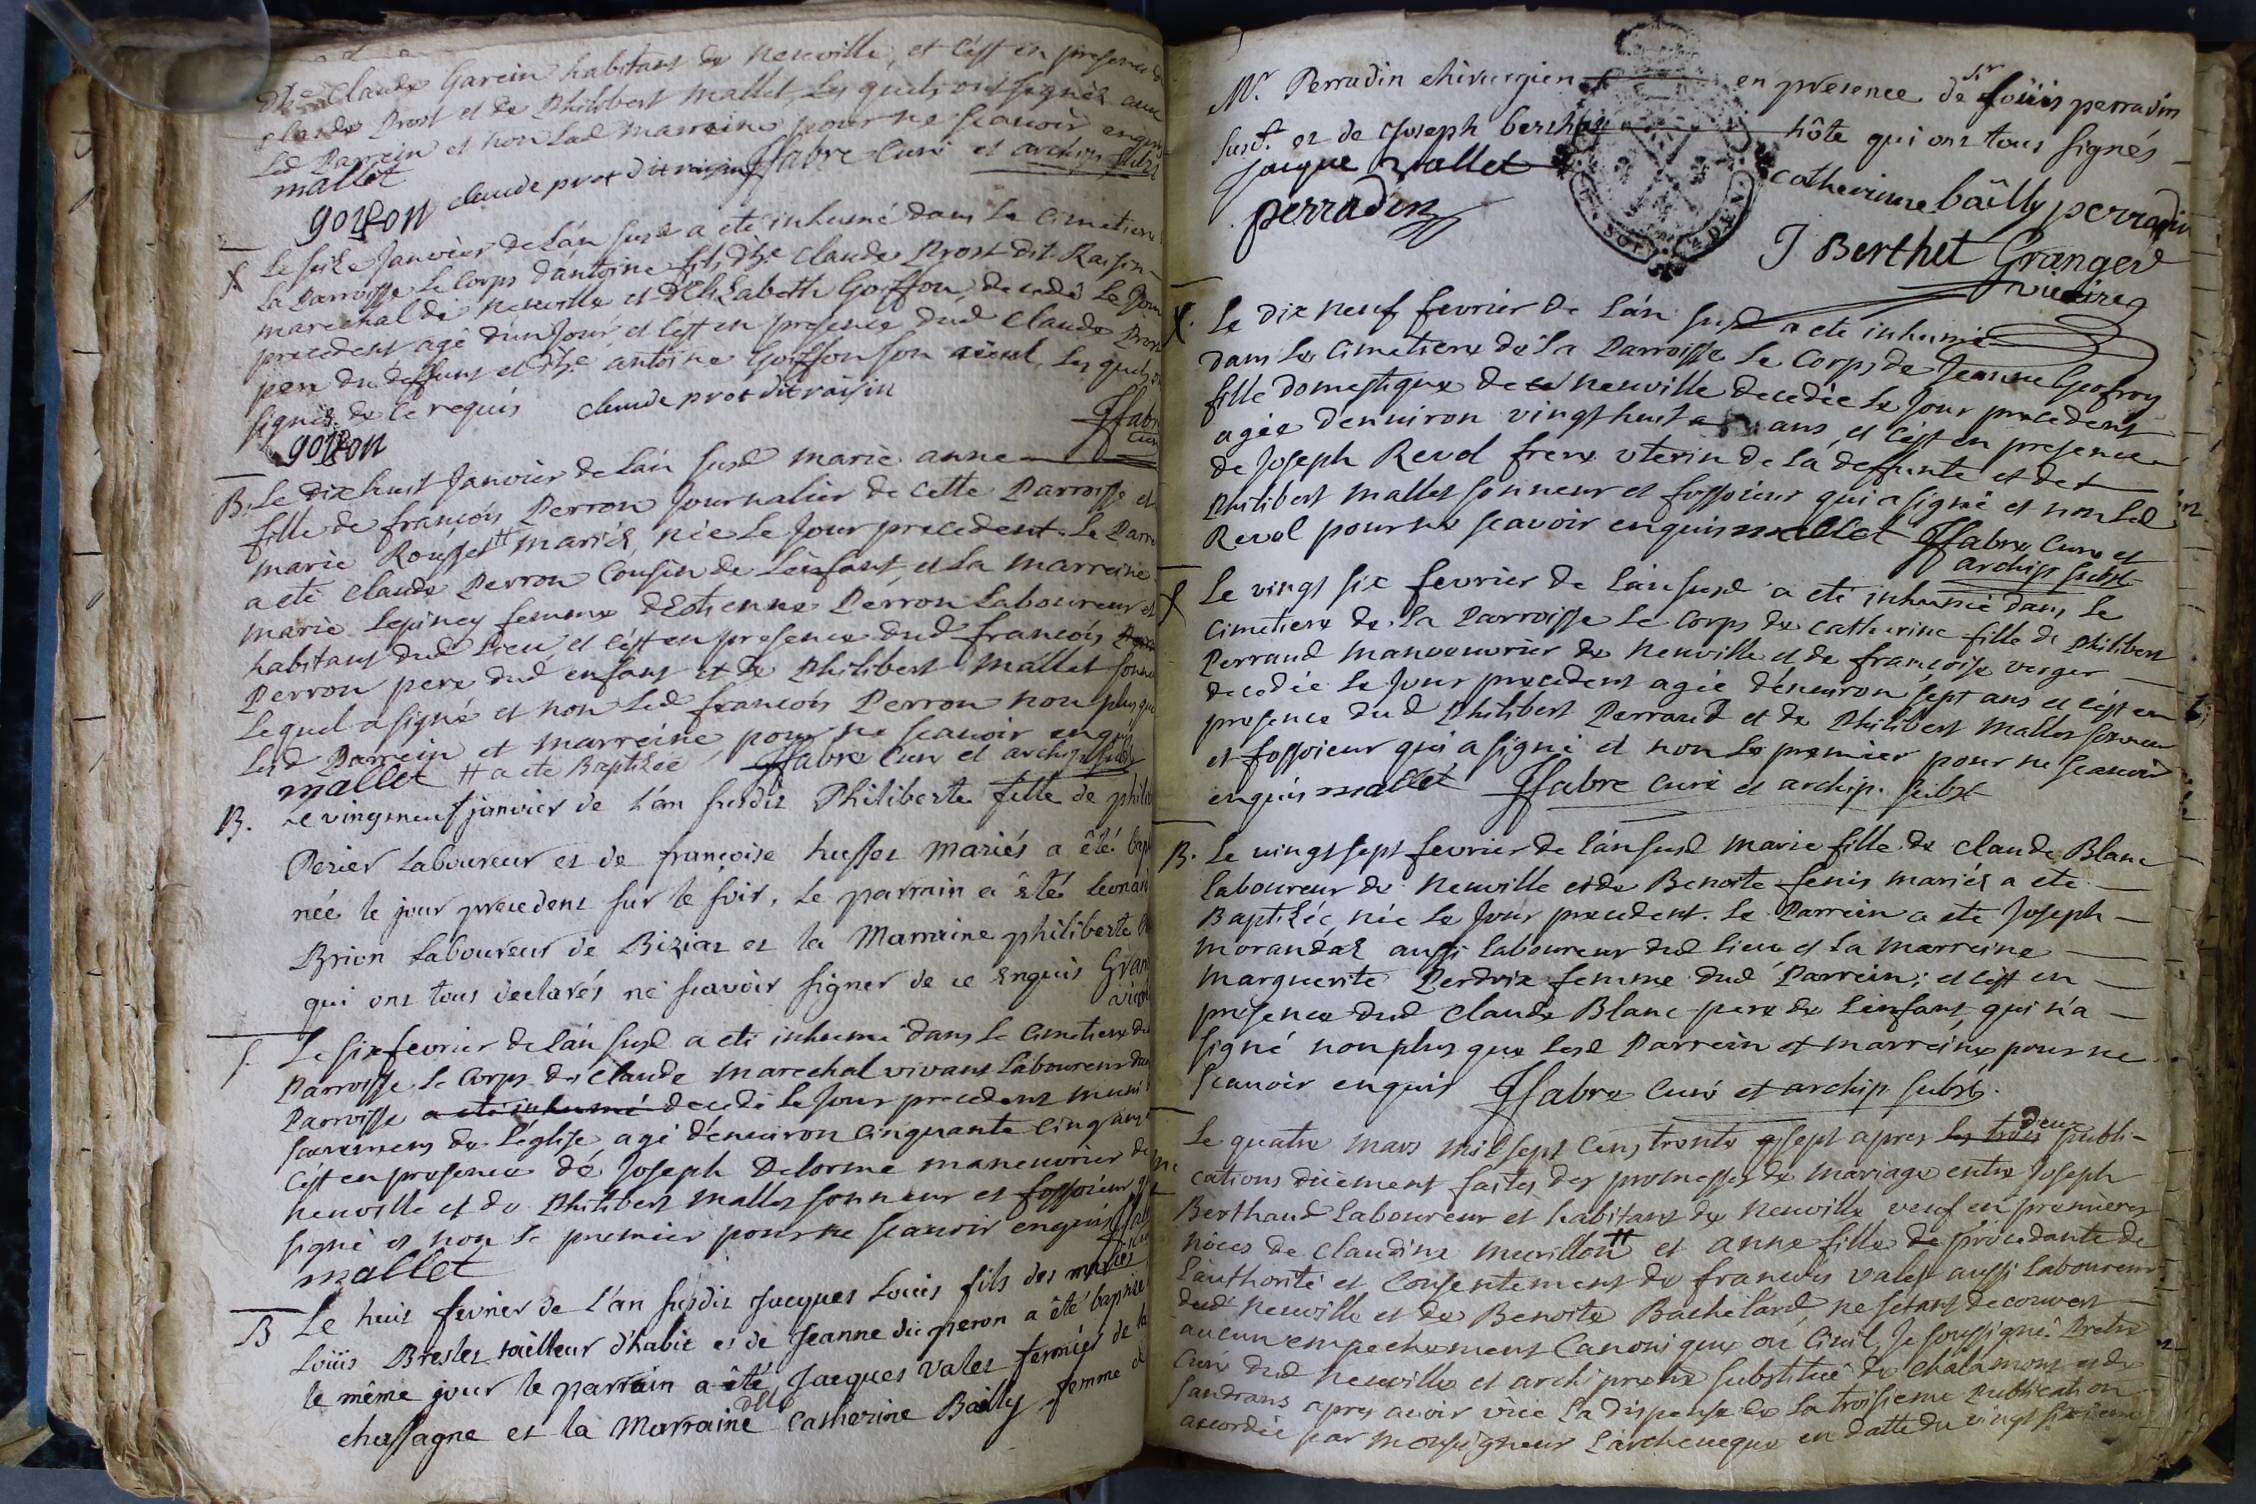 Claude Garcin habitant de Neuville, et c'est en presence de
Claude Prost et de Philibert Mallet, lesquels ont signés avec
led Parrein et non lad marreine pour ne scavoir enquis
mallet goiffon claude prost dit raisin Ffabre curé et archip. subst
S Le seize Janvier de l'an susd a eté inhumé dans le cimetiere
la Parroisse le corps d'antoine fils d'h.e Claude Prost dit Raisin
marechal de Neuville et d'Elizabeth Goiffon, decedé le Jour
precedent agé d'un Jour, et c'est en presence dud Claude Prost
pere du deffunt et d'h.e antoine Goiffon son aieul, lesquels ont
signés de ce requis claude prost dit raisin
goiffon Ffabre curé
B. Le dix huit Janvier de l'an susd marie anne
fille de françois Perron Journalier de cette Parroisse et
marie Rousset # mariés, née le Jour precedent. Le Parrein
a eté Claude Perron Cousin de L'enfant, et La marreine
marie Lepiney femme d'Estienne Perron Laboureur et
habitant dud Lieu, et c'est en presence dud françois
Perron pere dud enfant et de Philibert Mallet sonneur
lequel a signé et non led françois Perron non plus que
lesd Parrein et marreine, pour ne scavoir enquis
mallet # a eté Baptizée Ffabre curé et archip. subst
B. Le vingt neuf janvier de l'an susdit Philiberte fille de philibert
Perier Laboureur et de françoise husson mariés a été bap
née le jour precedent sur le soir, le parrain a été Leonard
Brion Laboureur de Biziat et la Marraine philiberte
qui ont tous declarés ne scavoir signer de ce enquis Granger
vicaire
S. Le six fevrier de l'an susd a eté inhumé dans le cimetiere de
Parroisse le Corps de Claude marechal vivant Laboureur dans
Parroisse a eté inhumé decedé le Jour precedent muni
sacremens de L'église, agé d'environ cinquante cinq ans
c'est en presence de Joseph Delorme manouvrier de
neuville et de Philibert Mallet sonneur et fossoieur qui
signé et non le premier pour ne scavoir enquis Ffabre
mallet
B Le huit fevrier de l'an susdit Jacques Louis fils des mariés
Loüis Breslet tailleur d'habit et de Jeanne duqueron a été baptisé
le même jour le parrain a été Jacques Valet fermier de la
chassagne et la Marraine dlle Catherine Bailly femme de
Mr. Perradin chirurgien en presence de sr. Loüis perradin
susd. et de Joseph berthet hôte qui ont tous signés
Jacque Vallet catherinne bâilly perradin
perradin J Berthet Granger
vicaire
S. Le dix neuf fevrier de l'an susd a eté inhumée
dans le cimetiere de la Parroisse le Corps de Jeanne Geofroy
fille domestique de Neuville decedée le Jour precedent
agée d'environ vingt huit ans, et c'est en presence
de Joseph Revol frere uterin de la deffunte et de
Philibert Mallet sonneur et fossoieur qui a signé et non led
Revol pour ne scavoir enquis mallet Ffabre curé et
archip. subst
S Le vingt six fevrier de l'an susd a eté inhumée dans le
cimetiere de la Parroisse le Corps de catherine fille de Philibert
Perraud manouvrier de Neuville et de françoise verger
decedée le Jour precedent agée d'environ sept ans et c'est en
presence dud Philibert Perraud et de Philibert Mallet sonneur
et fossoieur qui a signé et non le premier pour ne scavoir
enquis mallet Ffabre curé et archip. subst
B. Le vingt sept fevrier de l'an susd Marie fille de Claude Blanc
laboureur de Neuville et de Benoite fenis mariés a eté
Baptizée, née le Jour precedent. Le Parrein a eté Joseph
morandas aussi laboureur dud lieu et la marreine
marguerite Perdrix femme dud Parrein; et c'est en
presence dud Claude Blanc pere de L'enfant, qui n'a
signé non plus que lesd Parrein et marreine pour ne
scavoir enquis Ffabre curé et archip. subst.
Le quatre mars mil sept cens trente sept apres les trois deux publi-
cations düement faites des promesses de mariage entre Joseph
Berthaud laboureur et habitant de Neuville veuf en premieres
nôces de Claudine meurillon # et anne fille de procedante de
l'authorité et consentement de francois valet aussi laboureur
dud Neuville et de Benoite Bachelard, ne s'étant decouvert
aucun empechement Canonique ou Civil, Je soussigné Pretre
Curé dud Neuville et archipretre substitué de Chalamont et de
Sandrans apres avoir veüe la dispense de la troisieme Publication
accordée par Monseigneur L'archeveque en datte du vingt sixieme